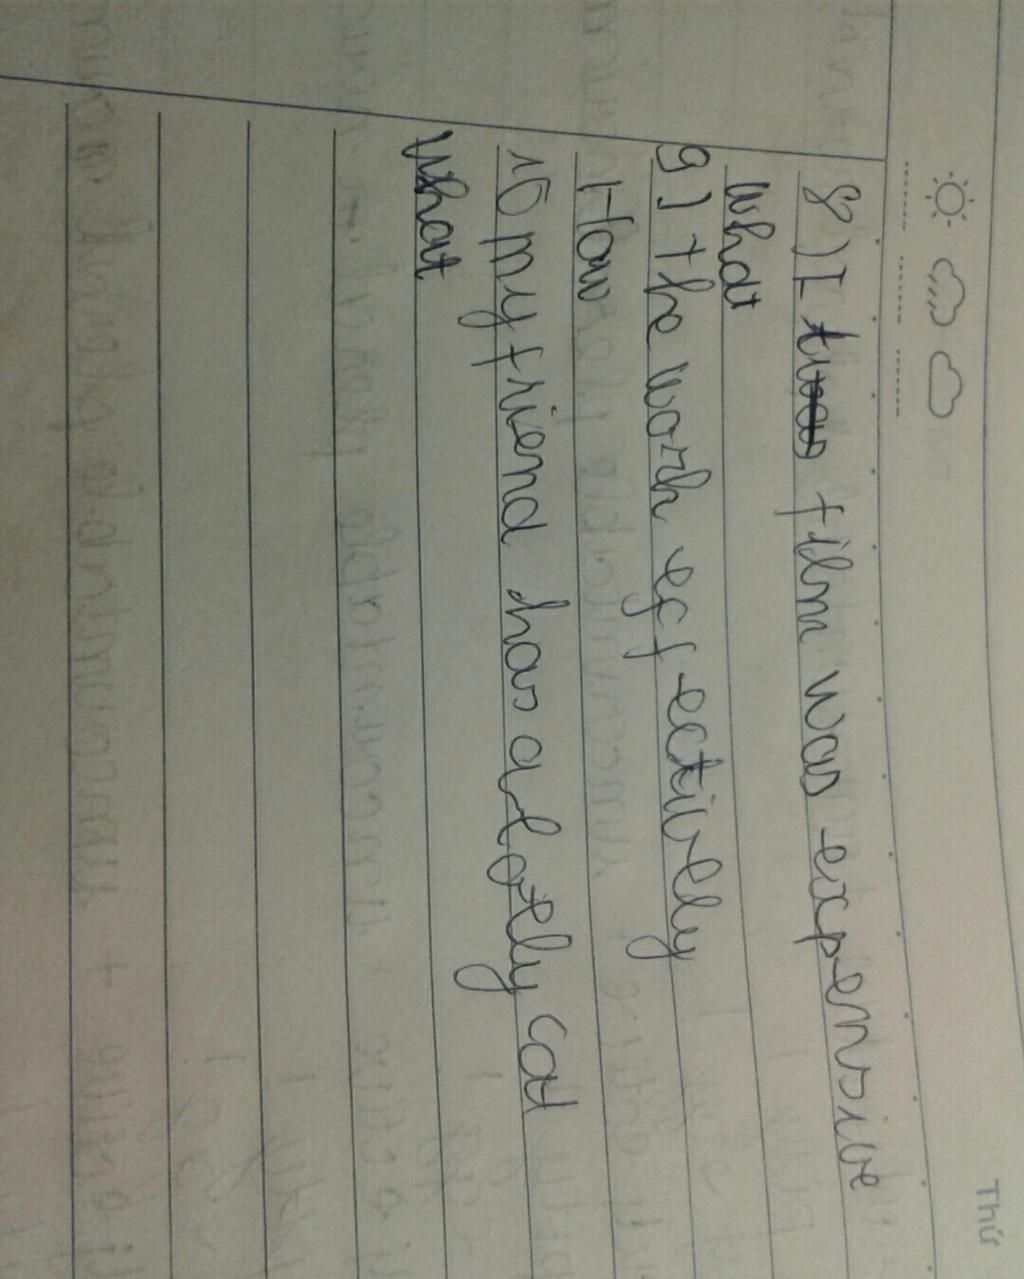 Thứ
8) I film was expensive
what
9) the work effectively
How
10 my friend has a lovely cat
what